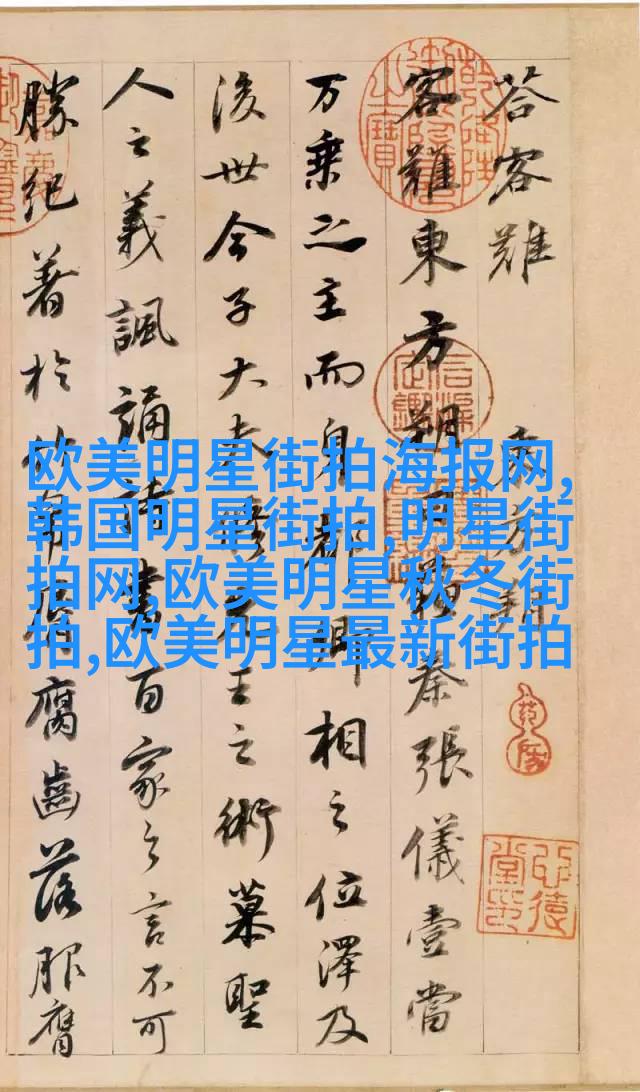 荅客難 東方朔
客難東方朔曰蘇秦張儀壹當
万乗之主而身都卿相之位澤及
後世今子大夫脩先王之術慕聖
人之義諷誦詩書百家之言不可
勝紀著於竹帛脣腐齒落服膺
欧美明星街拍海报网,
韩国明星街拍,明星街
拍网,欧美明星秋冬街
拍,欧美明星最新街拍